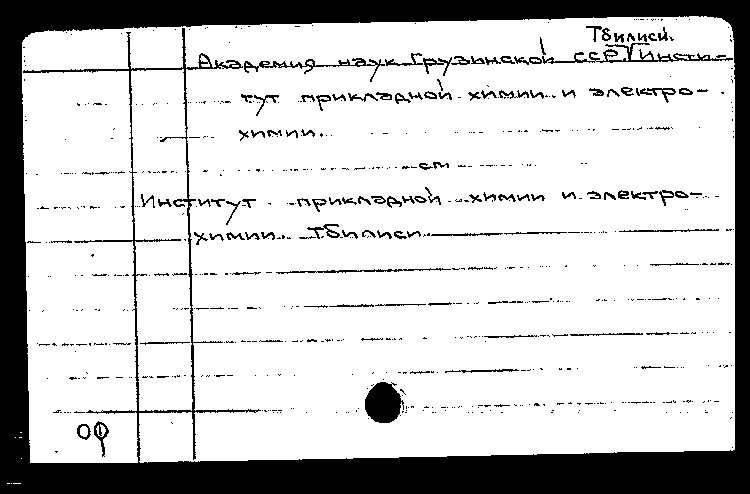 Тбилиси.
Академия наук Грузинской ССР. Инсти-
тут прикладной химии и электро-
химии.
см
Институт прикладной химии и электро-
химии. Тбилиси